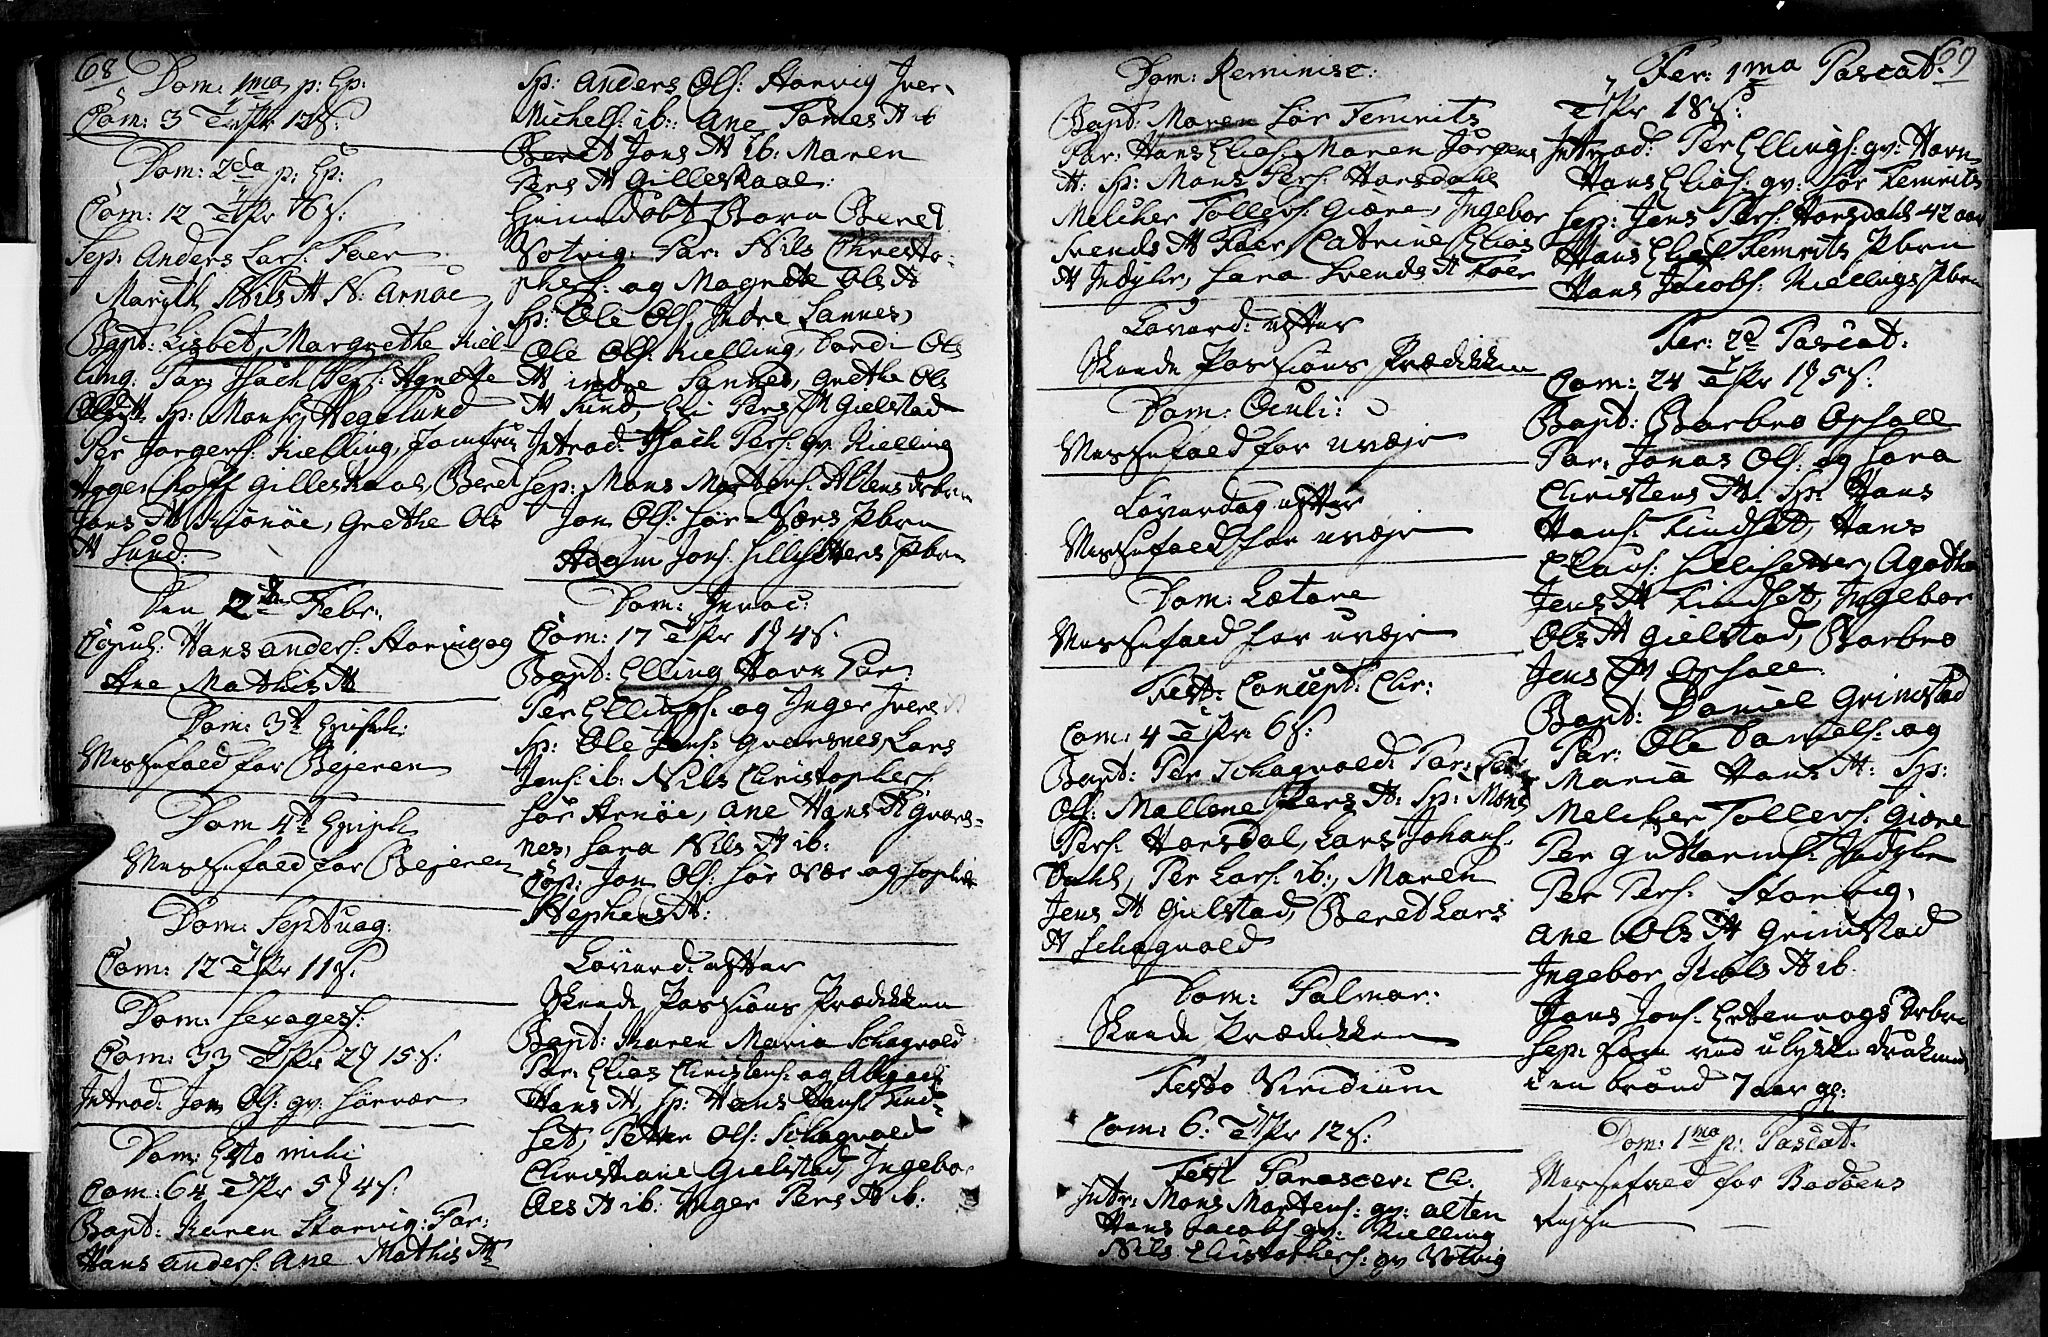 68
Dom: 1ma p: Ep:
Com: 3 TPr 12 s:
Dom: 2da p: Ep:
Com: 12 TPr 16 s:
Sep: Anders Lars: Foer
Maryth Nils D N: Arnöe
Bapt: Lisbet Margrethe Kiel-
ling: Par: Isach Pers: Agnette
Ols D: Sp: Mons: Hegelund
Per Jørgens: Kielling, Jomfru
Agger Hoff Gilleskaal, Beret
Jons D Kiönöe, Grethe Ols
D Sund:
Den 2den Febr:
Copul: Hans Anders: Storvig og
Ane Mathis D
Dom: 3t Epiph:
Messefald for Bejeren
Dom 4t Epiph
Messefald for Bejeren
Dom: Septuag:
Com: 12 TPr 11 s.
Dom: Sexages:
Com: 33 TPr 2 15 s:
Introd: Jon Ols: gv: Sörvær
Dom: Esto mihi
Com: 64 TPr 5 4 s:
Bapt: Karen Storvig: Par:
Hans Anders: Ane Mathis D
Sp: Anders Ols: Storvig Iver
Michels: ib: Ane Tomes D ib
Beret Jons D ib: Maren
Pers D Gilleskaal:
Hjemdöbt Barn Beret
Solvig: Par: Nils Christo-
phers: og Magrete Ols D
Sp: Ole Ols: Indre Sannes,
Ole Ols: Kielling, Dordi Ols
D indre Sannes, Grethe Ols
D Sund, Eli Pers D Gielstad
Introd: Isach Pers: gv: Kielling
Sep: Mons Mortens: Altens dbrn
Jon Ols: Sör Værs Pbrn
Adam Jons: Sillesetters Pbrn
Dom: Invoc:
Com: 17 TPr 1 4 s.
Bapt: Elling Horn Par:
Per Ellings: og Inger Ivers D
Sp: Ole Jens: Gvarsnes Lars
Jens: ib: Nils Christophers:
Sör Arnöe, Ane Hans D Gvars-
nes, Sara Nils D ib:
Cop: Jon Ols: Sör Vær og Sophie
Stephens D:
Löverd: efter
Skeede Passions Prædikken
Bapt: Maren Maria Schagvold
Par: Elias Christens: og Abigael
Hans D, Sp: Hans Hans: Kind-
set, Petter Ols: Schagvold
Christiane Gielstad, Ingebor
Oles D ib: Inger Pers D ib:
Dom: Reminisc:
Bapt: Maren Sör Femrits
Par: Hans Elias: Maren Jörgens
D: Sp: Mons Pers: Horsdahl
Melcher Tollers: Giære, Ingebor
Svends D Foer, Catrine Elias
D Indyhr, Sara Svends D Foer
Löverd: efter
Skeede Passions Prædikken
Dom: Oculi:
Messefald for uvejr
Löverdag efter
Messefald for uvejr
Dom: Lætare
Messefald for uvejr
Festo Concept: Chr:
Com: 4 TPr 6 s:
Bapt: Per Schagvold: Par: Peter
Ols: Mallene Pers D: Sp: Mons
Pers: Horsdal, Lars Johans:
Dahl, Per Lars: ib:, Maren
Jens D Gielstad, Beret Lars
D Schagvold
Dom: Palmar:
Skeede Prædikken
Festo Viridium
Com: 6: TPr 12 s:
Fest Parascev: Ch:
Intr: Mons Mortens: gv: Alten
Hans Jacobs: gv: Kielling
Nils Christophers: gv Solvig
69
Fer: 1ma Pascat:
TPr 18 s:
Introd: Per Ellings: gv: Horn
Hans Elias: gv: Sör Femrits
Sep: Jens Pers: Horsdahl 42 aar
Hans Elias Femrits Pbrn
Hans Jacobs: Kiellings Pbrn
Fer: 2d Pascat:
Com: 24 TPr 1 5 s:
Bapt: Barbro Opsall
Par: Jonas Ols: og Sara
Christens D: Sp: Hans
Hans: Kindset, Hans
Claus: Sillesetter, Agathe
Jens D Kindset, Ingebor
Ols D Gielstad, Barbro
Jens D Opsall
Bapt: Daniel Grimstad
Par: Ole Daniels: og
Maria Hans D: Sp:
Melcher Tollers: Giære
Per Guttorms: Indyhr
Per Pers: Storvig,
Ane Ols D Grimstad
Ingebor Niels D ib:
Hans Jons: Ertenvogs dbrn
Sep: som ved ulykke druknede
i en brönd 7 aar gl:
Dom: 1ma p: Pascat:
Messefald for Bodöens
Reyse